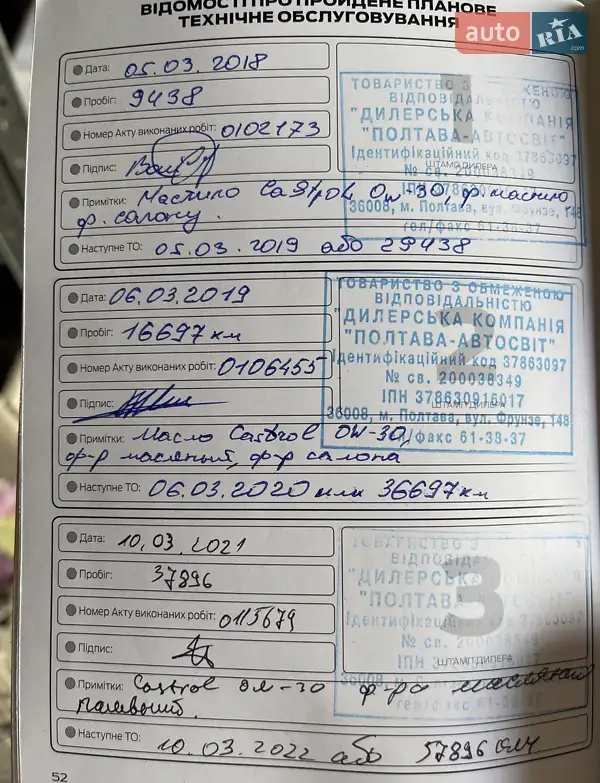 ВІДОМОСТІ ПРО ПРОЙДЕНЕ ПЛАНОВЕ
ТЕХНІЧНЕ ОБСЛУГОВУВАННЯ
auto RIA.com
Дата: 05.03.2018
Пробіг: 9438
Номер Акту виконаних робіт: 0102173
Підпис:
ТОВАРИСТВО З ЖЕНОЮ
ВІДПОВІДАЛЬНІСТЮ
"ДИЛЕРСЬКА КОМПАНІЯ
"ПОЛТАВА-АВТОСВІТ"
Ідентифікаційний код 37863097
№ св. 200038349
ШТАМП ДИЛЕРА
36008, м. Полтава, вул. Фрунзе, 148
тел/факс 61-38-37
1
Примітки: Мастило Castrol 0w30 ф. мастило
ф. салону.
Наступне ТО: 05.03.2019 або 29438
Дата: 06.03.2019
Пробіг: 16697 км
Номер Акту виконаних робіт: 0106455
Підпис:
ТОВАРИСТВО З ОБМЕЖЕНОЮ
ВІДПОВІДАЛЬНІСТЮ
"ДИЛЕРСЬКА КОМПАНІЯ
"ПОЛТАВА-АВТОСВІТ"
Ідентифікаційний код 37863097
№ св. 200038349
ІПН 378630916017
ШТАМП ДИЛЕРА
36008, м. Полтава, вул. Фрунзе, 148
/факс 61-38-37
2
Примітки: Масло Castrol 0W-30,
ф-р масляный, ф-р салона
Наступне ТО: 06.03.2020 или 36697 км
Дата: 10.03.2021
Пробіг: 37896
Номер Акту виконаних робіт: 0115679
Підпис:
ТОВАРИСТВО З
ВІДПОВІДА
"ДИЛЕРСЬКА
"ПОЛТАВА
Ідентифікац 37863097
№ св. 200038349
ІПН
ШТАМП ДИЛЕРА
36008, м.
61-38-37
3
Примітки: Castrol ф-ра масляний
паливний.
Наступне ТО: 10.03.2022 або 57896
52